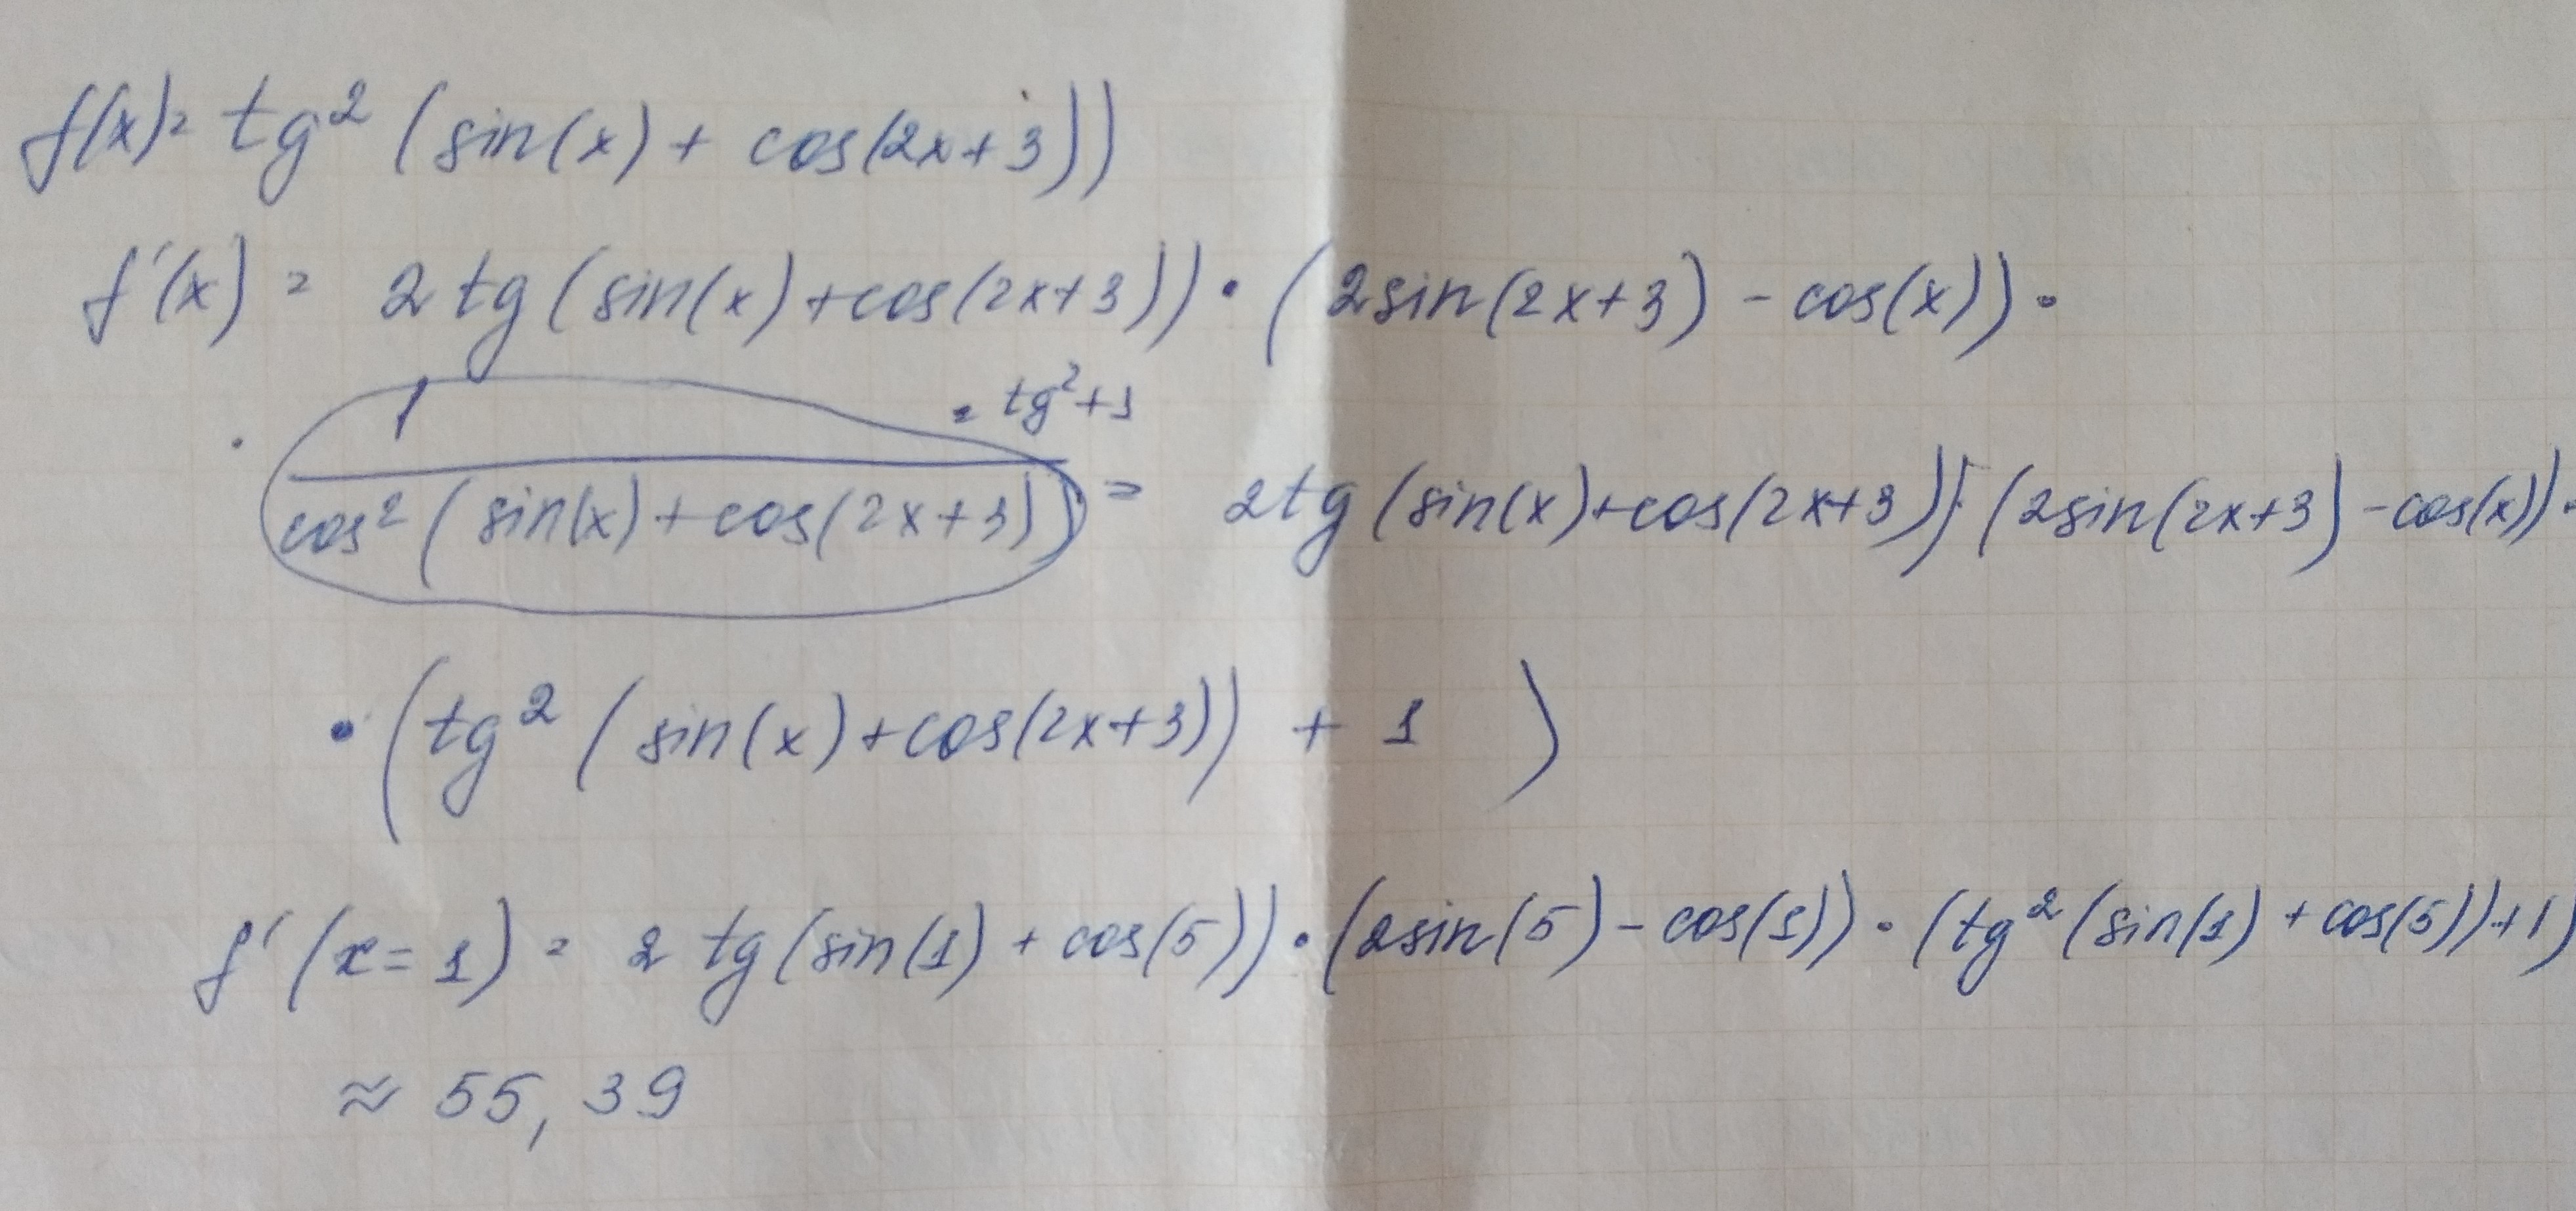 f(x) = tg² (sin(x) + cos(2x+3))
f'(x) = 2 tg (sin(x) + cos(2x+3)) • (2sin(2x+3) - cos(x)) •
= tg²+1
• 1 / cos² (sin(x) + cos(2x+3)) = 2tg (sin(x)+cos(2x+3)) • (2sin(2x+3) - cos(x)) •
• (tg² (sin(x)+cos(2x+3)) + 1)
f' (x=1) = 2 tg (sin(1) + cos(5)) • (2sin(5) - cos(1)) • (tg² (sin(1) + cos(5)) + 1)
≈ 55,39